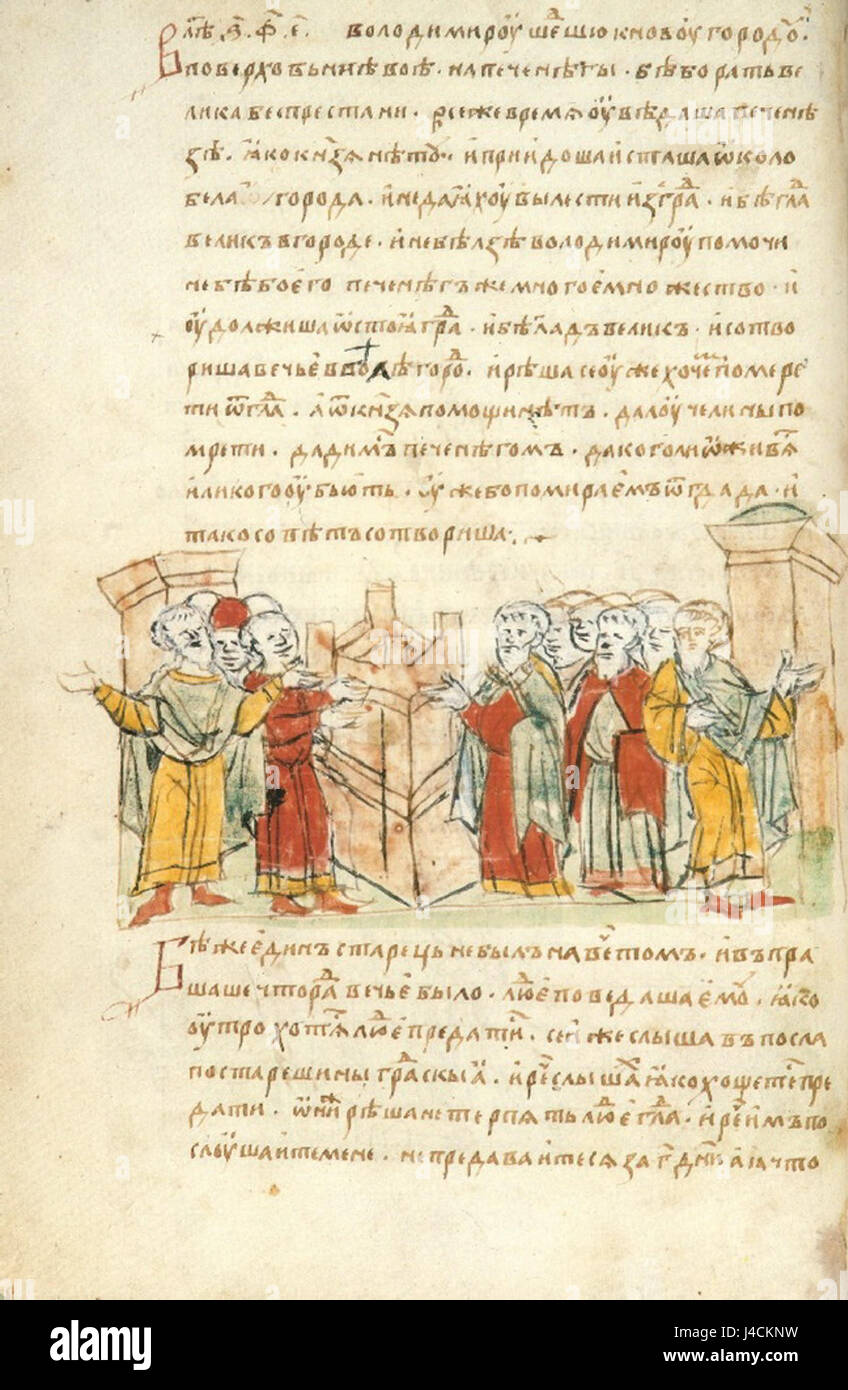 В лѣⷮ ҂ѕ҃. ф҃. е҃. володимироу шⷣешю к новоу городоⷹ.
по верховьниѣ воѣ. на печенѣгы. бѣ бо рать ве
лика беспрестани. в се же время оувѣдаша печенѣ
зѣ. ꙗко кнѧзѧ нѣтꙋ. и приидоша и сташа ѡколо
бела города. и не дадꙗхоу вылести из граⷣ. и бѣ глаⷣ
великъ в городе. и не бѣ лзѣ володимироу помочи
не бѣ бо ѥго печенѣгъ же многоѥ множество. и
оудолжишасѧ ѡстоꙗ граⷣ. и бѣ глⷣадъ великъ. и сотво
риша вечьѥ в городѣ. и рѣша се оуже хочеⷨ помере
ти ѿ глаⷣ. а ѿ кнѧзѧ помощи нѣтъ. да лоуче ли ны по
мрети. дадимъ печенѣгомъ. да кого ли ѡживѧⷮ
или кого оубьють. оуже бо помираемъ ѿ глада. и
тако совѣтъ сотвориша.
Бѣ же единъ старець не былъ на вѣⷱтомъ. и въпра
шаше что раⷣ вечьѥ было. людⷣѥ поведаша ѥмоⷹ. ꙗко
оутро хотѧⷮ людⷣѥ предатиⷭ. сеи же слышавъ посла
по старешины граⷣскыꙗ. и реⷱ слышаⷯ ꙗко хощете пре
дати. ѡниⷤ рѣша не терпѧть людⷣѥ глаⷣ. и реⷱ имъ по
слоушаите мене. не предаваитесѧ за г҃ дн҃и а ꙗ что
alamy
alamy
Image ID: J4CKNW
www.alamy.com